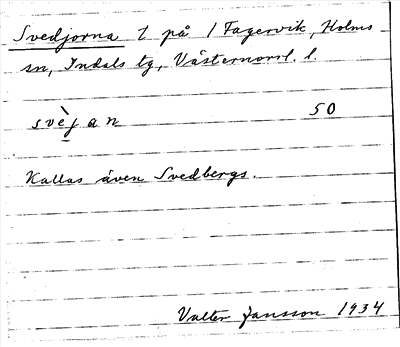 Svedjorna 1 på 1 Fagervik, Holms
sn, Indals tg, Västernorrl. l.
svèjan 50
Kallas även Svedbergs.
Valter Jansson 1934